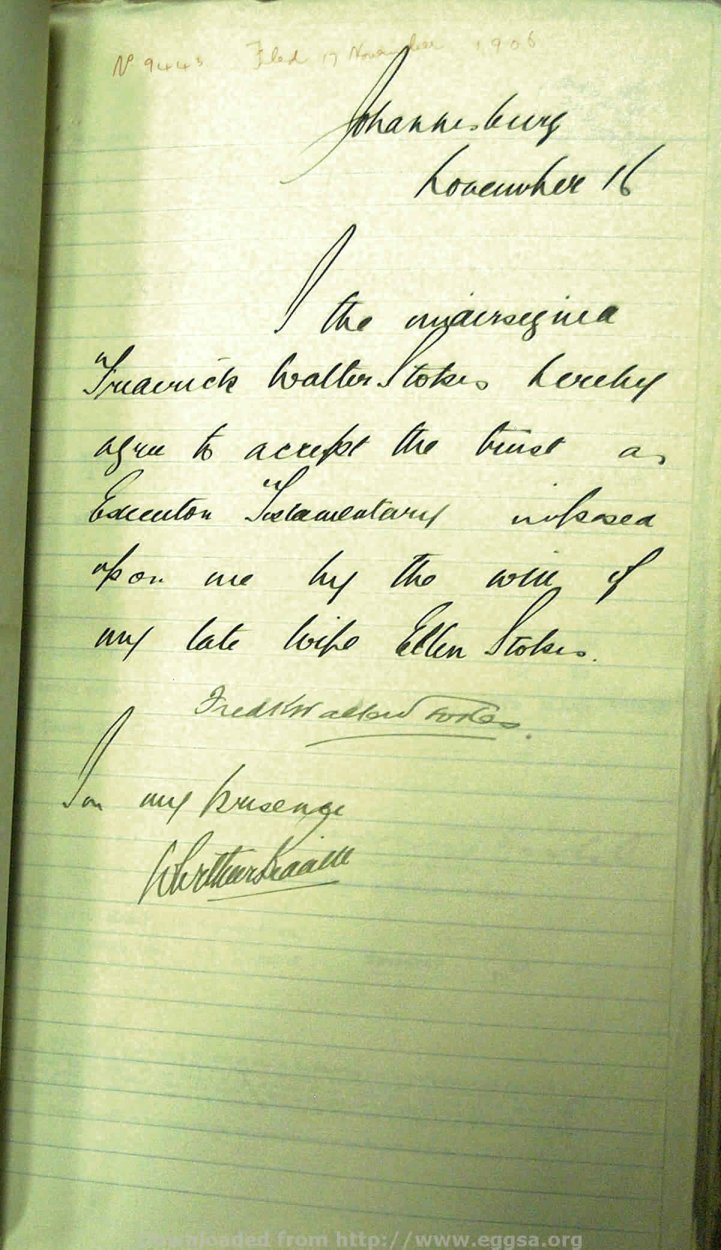 Nº 9443 Filed 17 November 1906
Johannesburg
November 16
I the undersigned
Frederick Walter Stokes hereby
agree to accept the trust as
Executor Testamentary imposed
upon me by the will of
my late wife Ellen Stokes.
Fredk Walter Stokes.
In my presence
Downloaded from http://www.eggsa.org